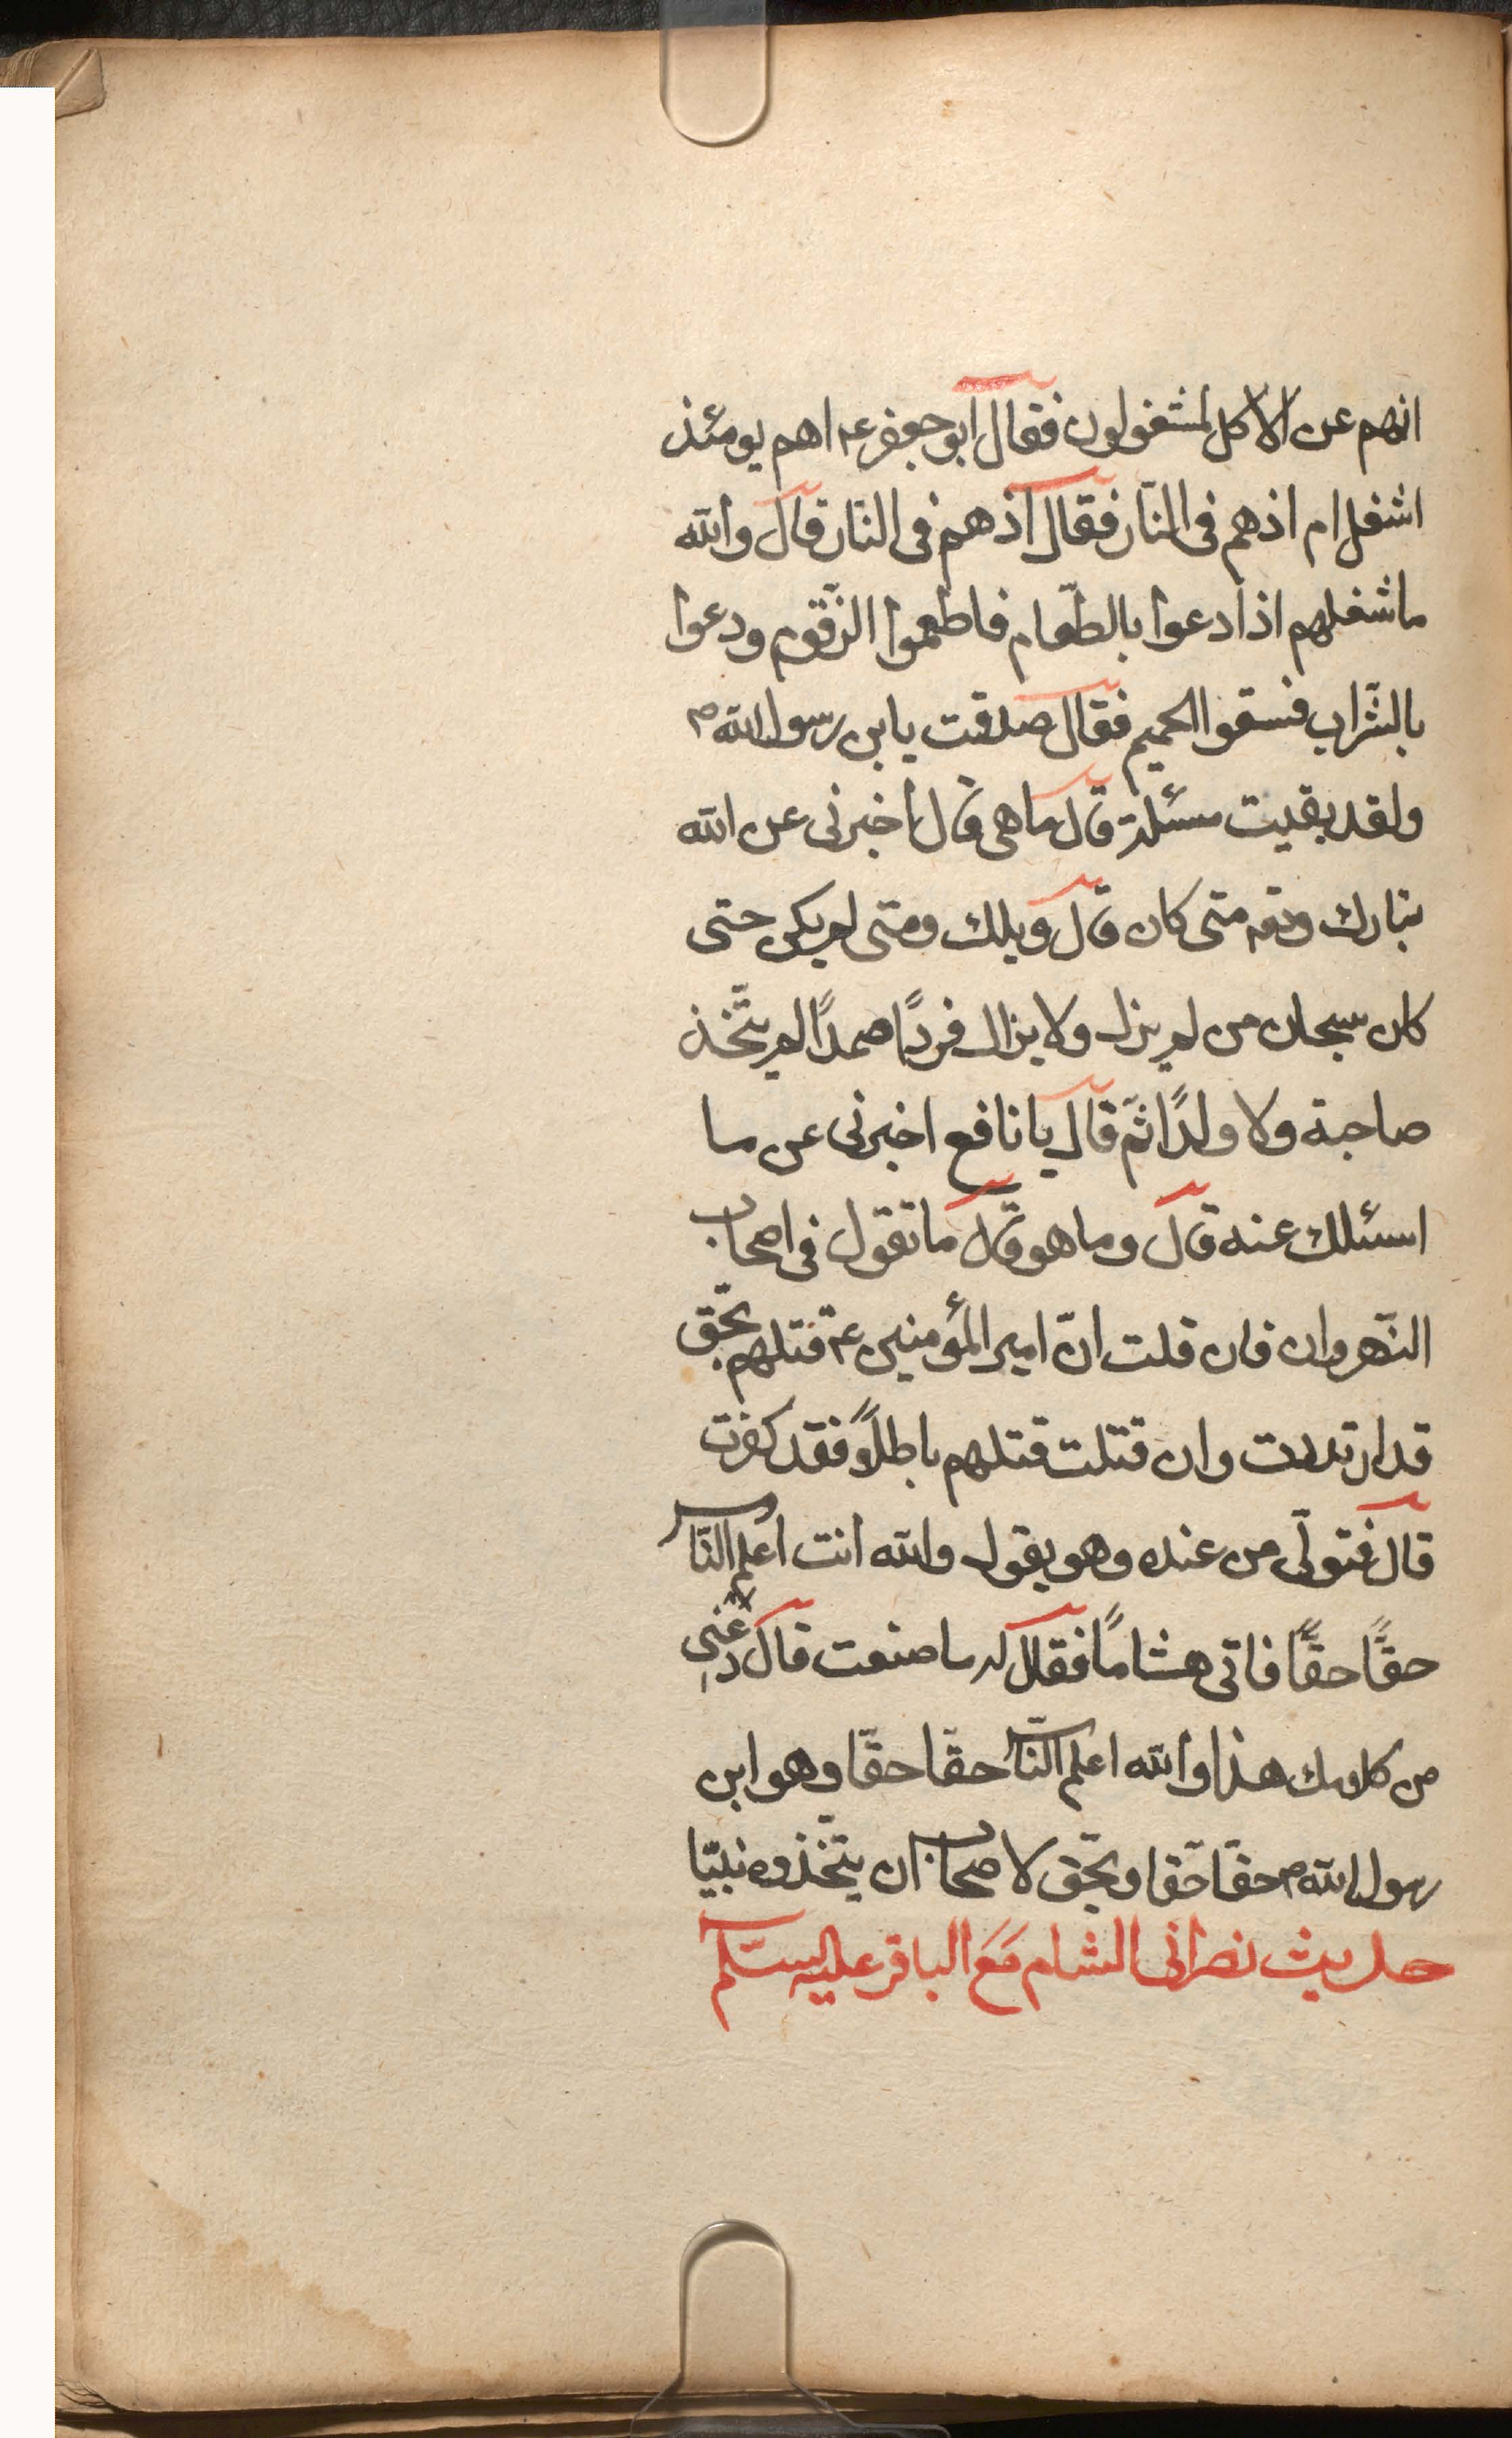 انهم عن الاكل لمشغولون فقال ابو جعفر عه اهم يومئذ
اشغل ام اذهم فى النّار فقال اذهم فى النّار قال والله
ما شغلهم اذا دعوا بالطّعام فاطعموا الزّقّوم ودعوا
بالشّراب فسقوا الحميم فقال صدقت يابن رسول الله ص
ولقد بقيت مسئلة قال ما هى قال اخبرنى عن الله
تبارك وتعه متى كان قال ويلك ومتى لم يكن حتى
كان سبحان من لم يزل ولا يزال فردًا صمدًا لم يتّخذ
صاحبة ولا ولدًا ثمّ قال يا نافع اخبرنى عن ما
اسئلك عنه قال وما هو قال ما تقول فى اصحاب
النّهروان فان قلت انّ امير المؤمنين ع قتلهم بحّق
قد ارتددت وان قتلت قتلهم باطلاً فقد كفرت
قال فتولّى من عنده وهو يقول والله انت اعلم النّاس
حقًّا حقًّا فاتى هشامًا فقال له ما صنعت قال دعنى
من كلامك هذا والله اعلم النّاس حقّا حقّا وهو ابن
رسول الله ص حقّا حقّا وبحّق لاصحابه ان يتّخذوه نبيّا
حديث نصرانى الشام مَعَ الباقر عليه السّلم